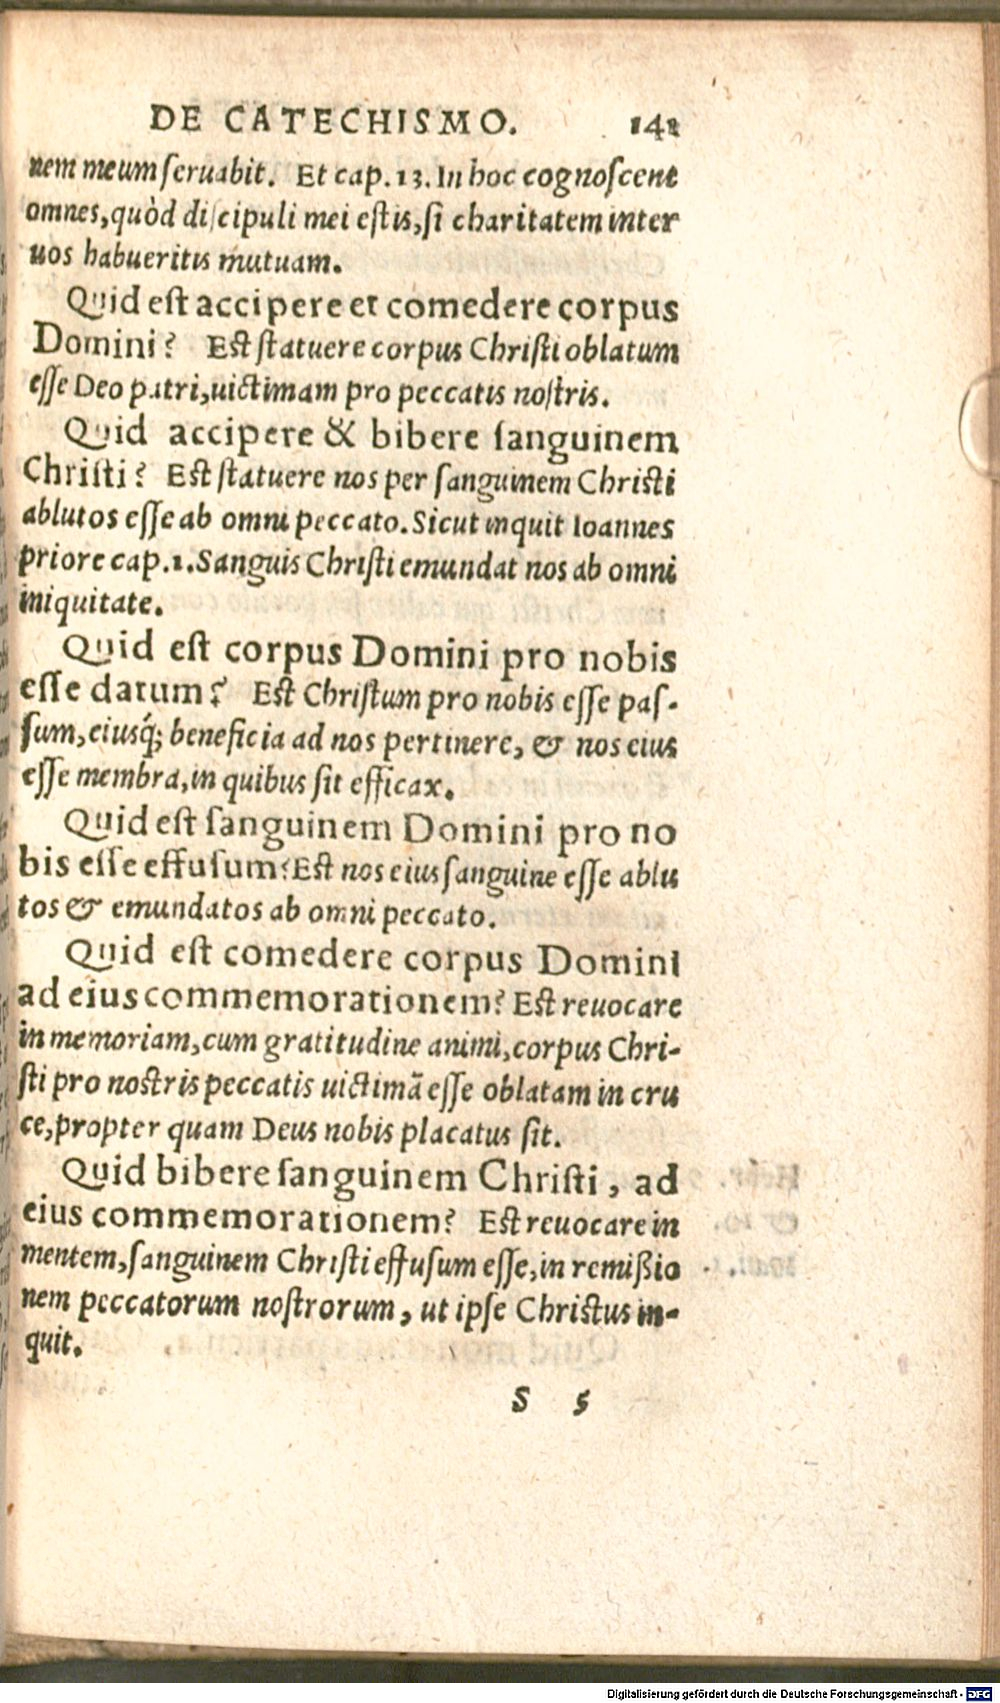 DE CATECHISMO. 141
nem meum seruabit. Et cap. 13. In hoc cognoscent
omnes, quòd discipuli mei estis, si charitatem inter
uos habueritis mutuam.
Quid est accipere et comedere corpus
Domini? Est statuere corpus Christi oblatum
esse Deo patri, uictimam pro peccatis nostris.
Quid accipere & bibere sanguinem
Christi? Est statuere nos per sanguinem Christi
ablutos esse ab omni peccato. Sicut inquit Ioannes
priore cap. 1. Sanguis Christi emundat nos ab omni
iniquitate.
Quid est corpus Domini pro nobis
esse datum? Est Christum pro nobis esse pas-
sum, eiusq́; beneficia ad nos pertinere, & nos eius
esse membra, in quibus sit efficax.
Quid est sanguinem Domini pro no
bis esse effusum? Est nos eius sanguine esse ablu
tos & emundatos ab omni peccato.
Quid est comedere corpus Domini
ad eius commemorationem? Est reuocare
in memoriam, cum gratitudine animi, corpus Chri-
sti pro nostris peccatis uictimā esse oblatam in cru
ce, propter quam Deus nobis placatus sit.
Quid bibere sanguinem Christi, ad
eius commemorationem? Est reuocare in
mentem, sanguinem Christi effusum esse, in remißio
nem peccatorum nostrorum, ut ipse Christus in-
quit.
S 5
Digitalisierung gefördert durch die Deutsche Forschungsgemeinschaft - DFG